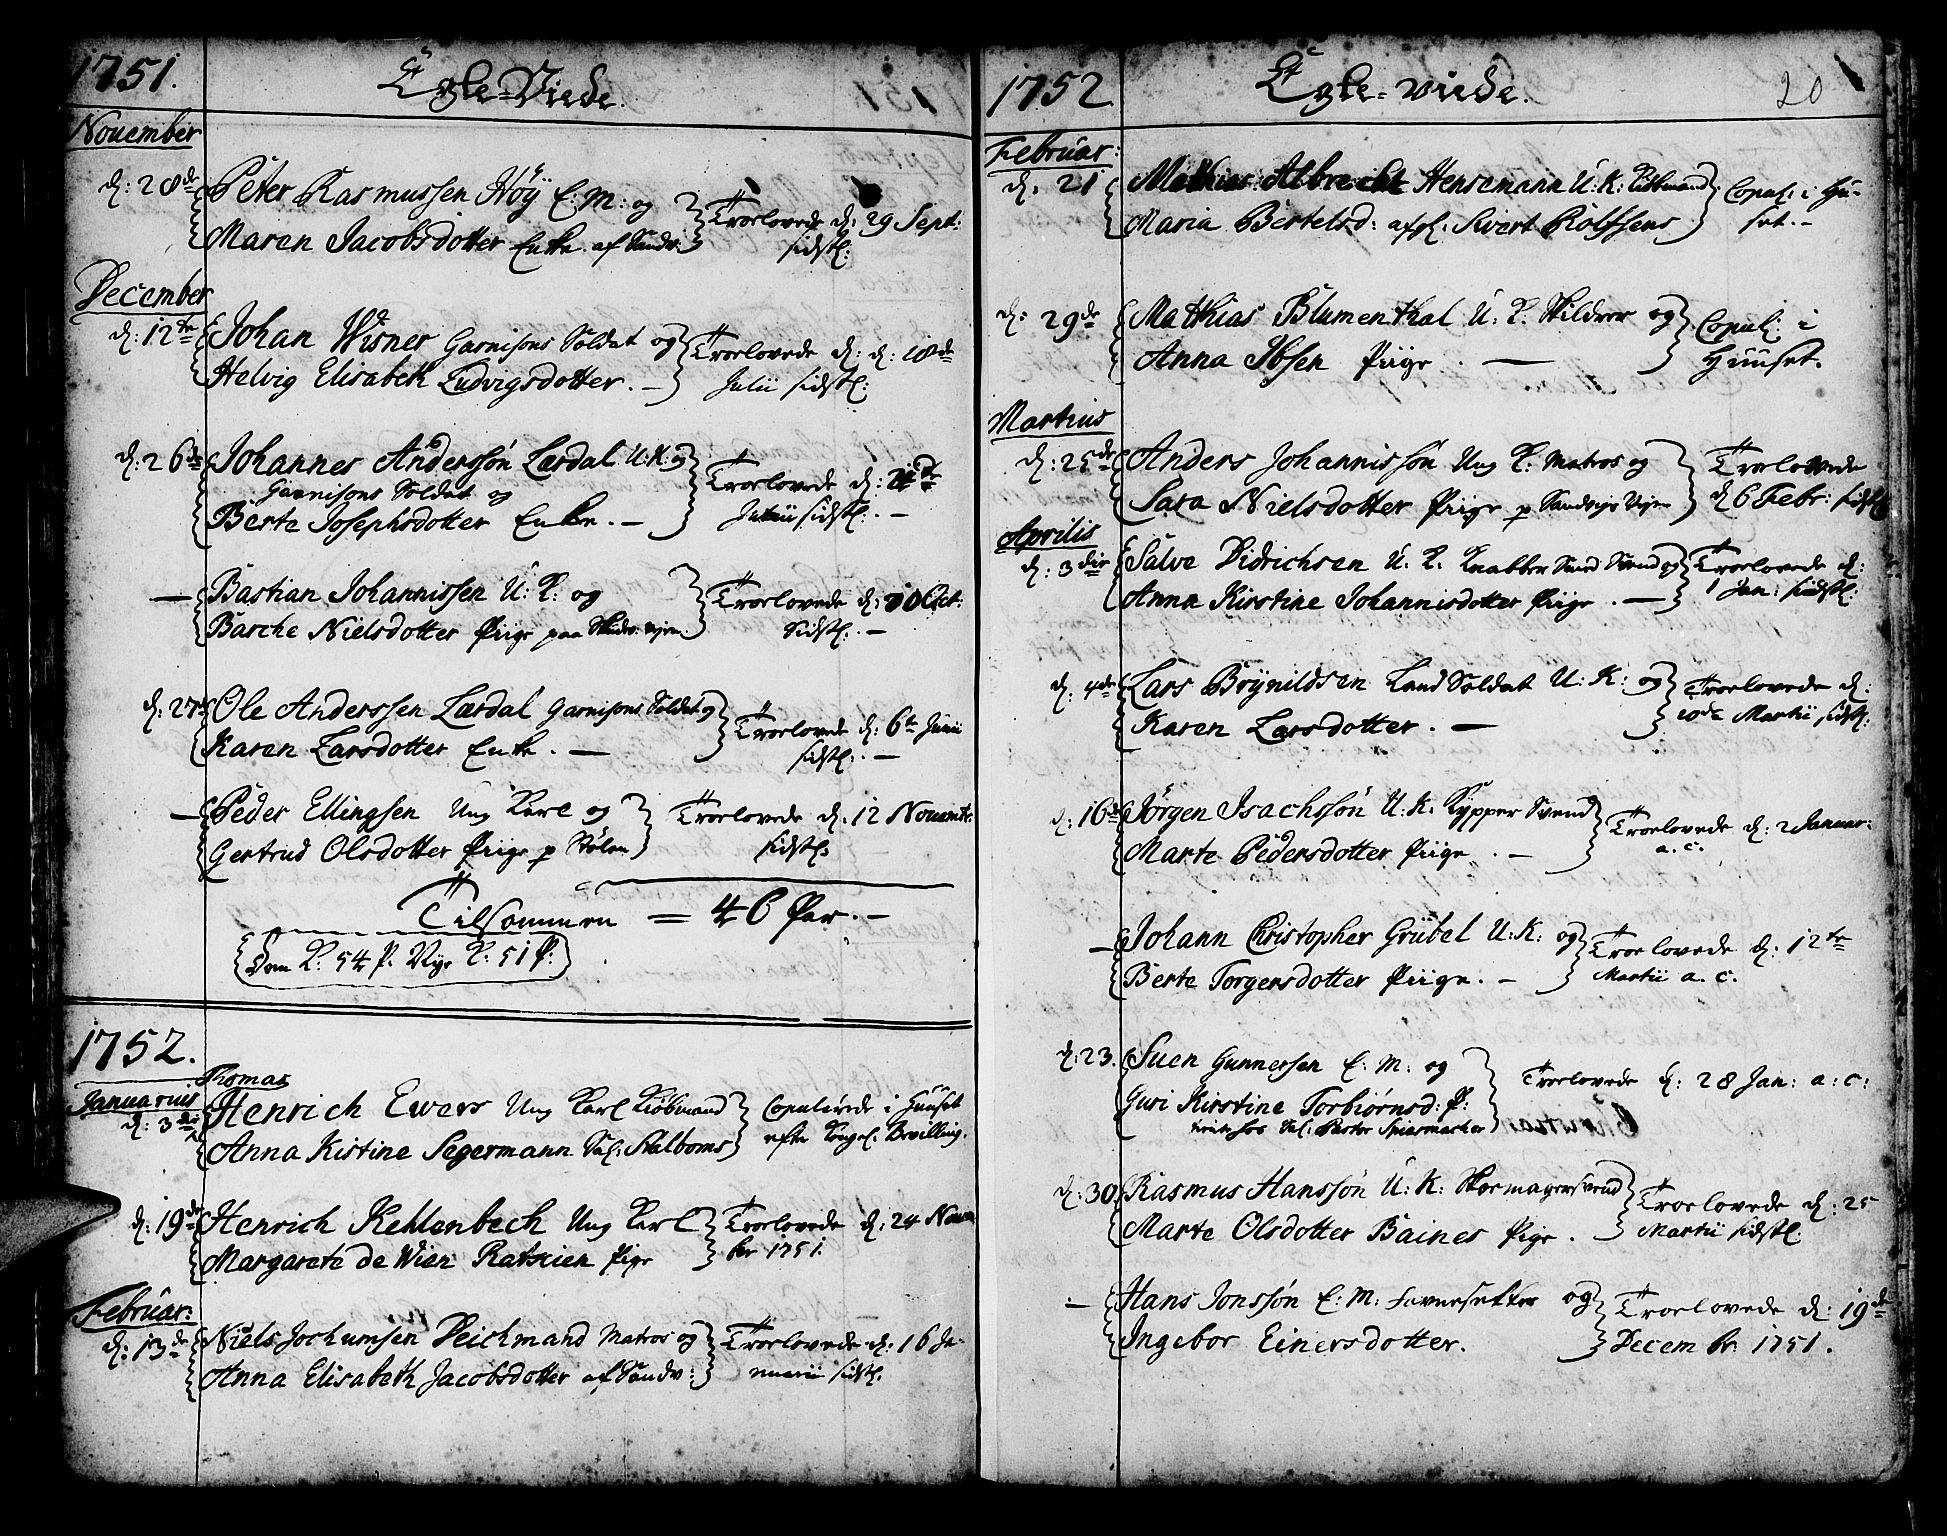 1751.
Egte-Viede.
November
d: 28de Peter Rasmussen Höÿ E: M: og
Maren Jacobsdotter Enke af Sandv:
Troelovede d: 29 Sept:
sidstl:
December
d: 12te Johan Wisner Garnisons Soldat og
Helvig Elisabeth Ludvigsdotter. —
Troelovede d: d: 18de
Julii sidstl:
d: 26de Johannes Anderssøn Lærdal U: K: og
Garnisons Soldat og
Berte Josephsdotter Enke. —
Troelovede d:
Julii sidstl: —
— Bastian Johannissen U: K: og
Barche Nielsdotter Piige paa
Troelovede d: Oct:
Sidstl: —
d: 27 Ole Anderssen Lærdal Garnisons Soldat og
Karen Larsdotter Enke. —
Troelovede d: 6te Junii
sidstl: —
— Peder Ellingsen Ung Karl og
Gertrud Olsdotter Piige p Stølen
Troelovede d. 12 Novembr.
sidstl:
Tilsammen = 46 Par. —
Dom K: 54 P. Nye K: 51 P:
1752.
Thomas
Januarius
d: 3die Henrich Ewers Ung Karl Kiöbmand
Anna Kistine Segermann Sal: Stalboms
Copulerede i Huuset
efter Kongel: Bevilling.
d: 19de Henrich Kehlenbech Ung Karl
Margarete de Wien Ratkien Pige
Troelovede d: 24 Novem
ber 1751.
Februar:
d: 13de Niels Jochumsen Deichmand Matros og
Anna Elisabeth Jacobsdotter af Sandv:
Troelovede d: 16 Ja-
nuarii sidstl.
1752.
Egte-viede.
20
Februar:
d. 21 Mathias Albrecht Hensemann U: K: Kiöbmand
Maria Bertelsd: afgl. Sivert Rolfsens
Copul: i Hu-
set. —
d: 29de Mathias Blumenthal U: K. Skildrer og
Anna Ibsen Piige. —
Copul: i
Huuset.
Martius
d: 25de Anders Johannissøn Ung K: Matros og
Sara Nielsdotter Piige p Sandvigs Vejen
Troelovede
d 6 Febr: sidstl
Aprilis
d: 3die Salve Didrichsen U: K. Knabber Smed Svend og
Anna Kirstine Johannisdotter Piige. —
Troelovede d:
1 Jan: sidstl:
d: 4de Lars Brÿnildsen Land Soldat U: K: og
Karen Larsdotter. —
Troelovede d:
10de Martii sidstl:
d: 16de Jørgen Isachssøn U: K. Kÿpper Svend
Marte Pedersdotter Piige. —
Troelovede d: 2 Januar:
a. c.
— Johann Christopher Grübel U: K: og
Berte Torgersdotter Piige. —
Troelovede d: 12te
Martii a. c.
d: 23. Suen Gunnersen E: M: og
Guri Kirstine Torbiørnsd: P:
Sal: Pastor Spiermacker
Troelovede d: 28 Jan: a: c:
d: 30. Rasmus Hanssøn U: K: Skoemagersvend
Marte Olsdotter Baines Pige.
Troelovede d: 25
Martii sidstl:
— Hans Jonssøn E: M: Favnesetter og
Ingebor Einersdotter.
Troelovede d: 19de
Decembr. 1751.